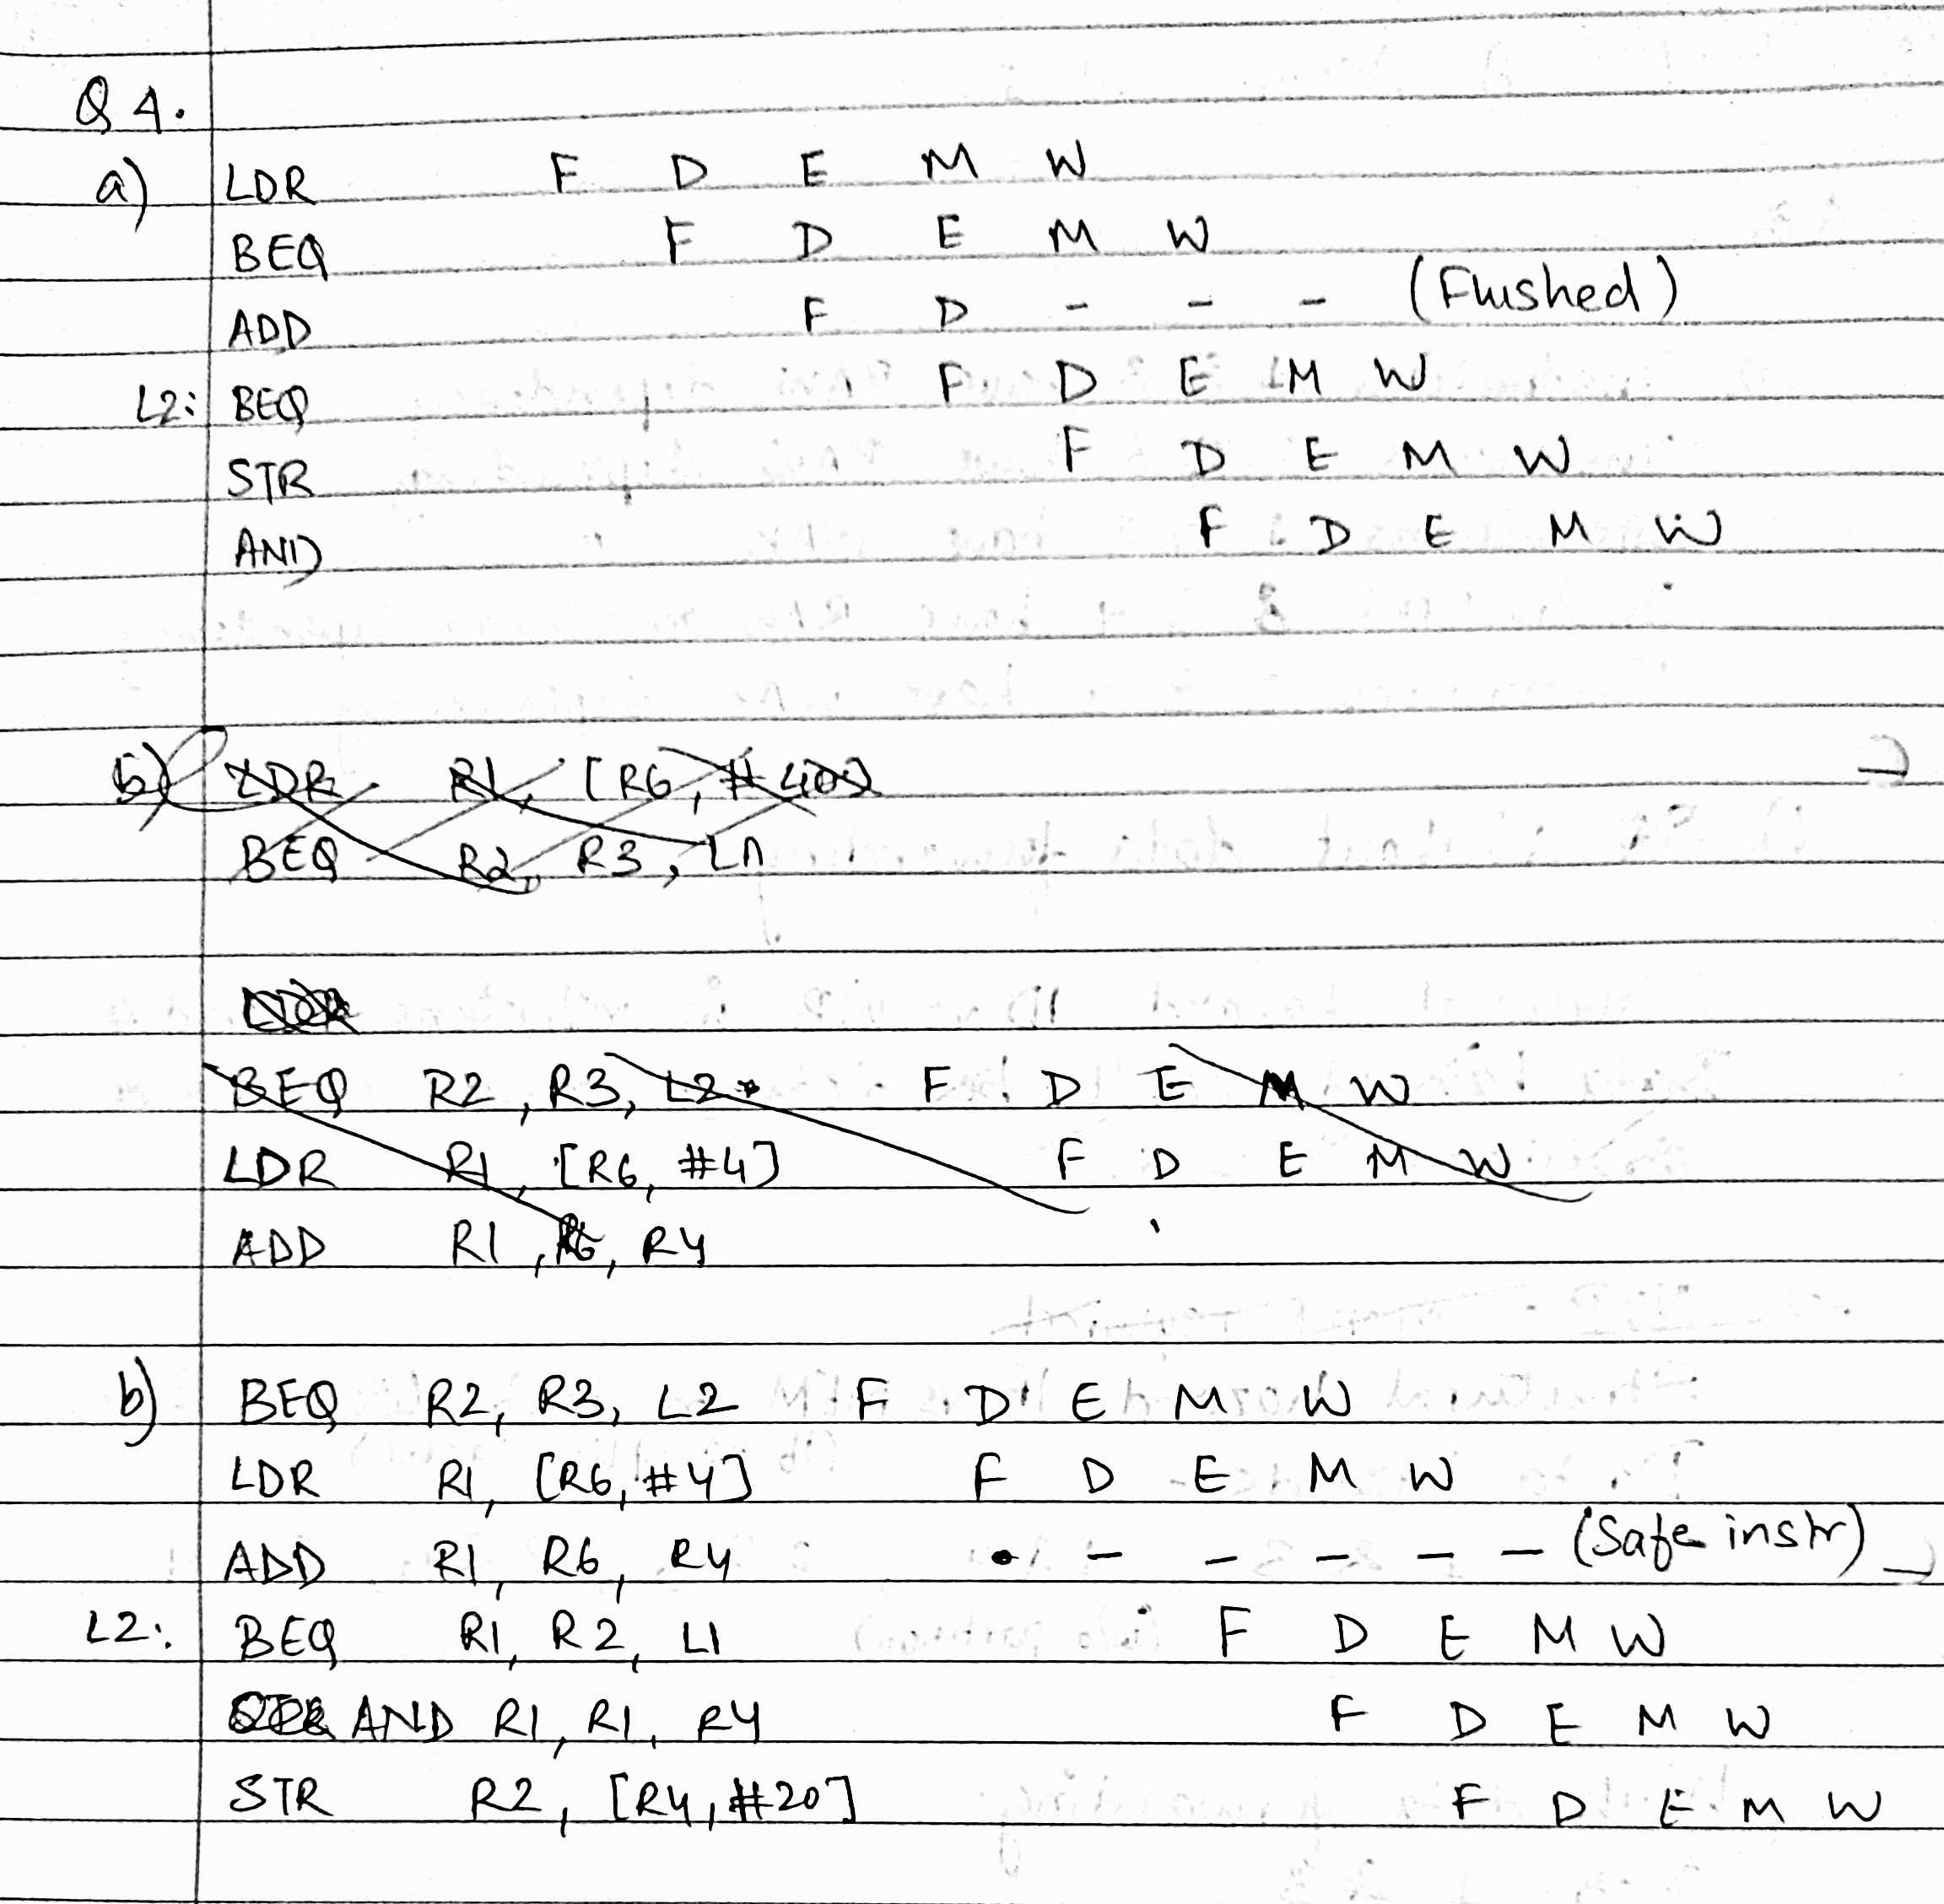 Q4.
a) LDR F D E M W
BEQ F D E M W
ADD F D - - - (Flushed)
L2: BEQ F D E M W
STR F D E M W
AND F D E M W
b) LDR R1, [R6, #40]
BEQ R2, R3, Ln
BEQ R2, R3, L2 F D E M W
LDR R1, [R6, #4] F D E M W
ADD R1, R6, R4
b) BEQ R2, R3, L2 F D E M W
LDR R1, [R6, #4] F D E M W
ADD R1, R6, R4 • - - - - - (Safe instr)
L2: BEQ R1, R2, L1 F D E M W
AND R1, R1, R4 F D E M W
STR R2, [R4, #20] F D E M W